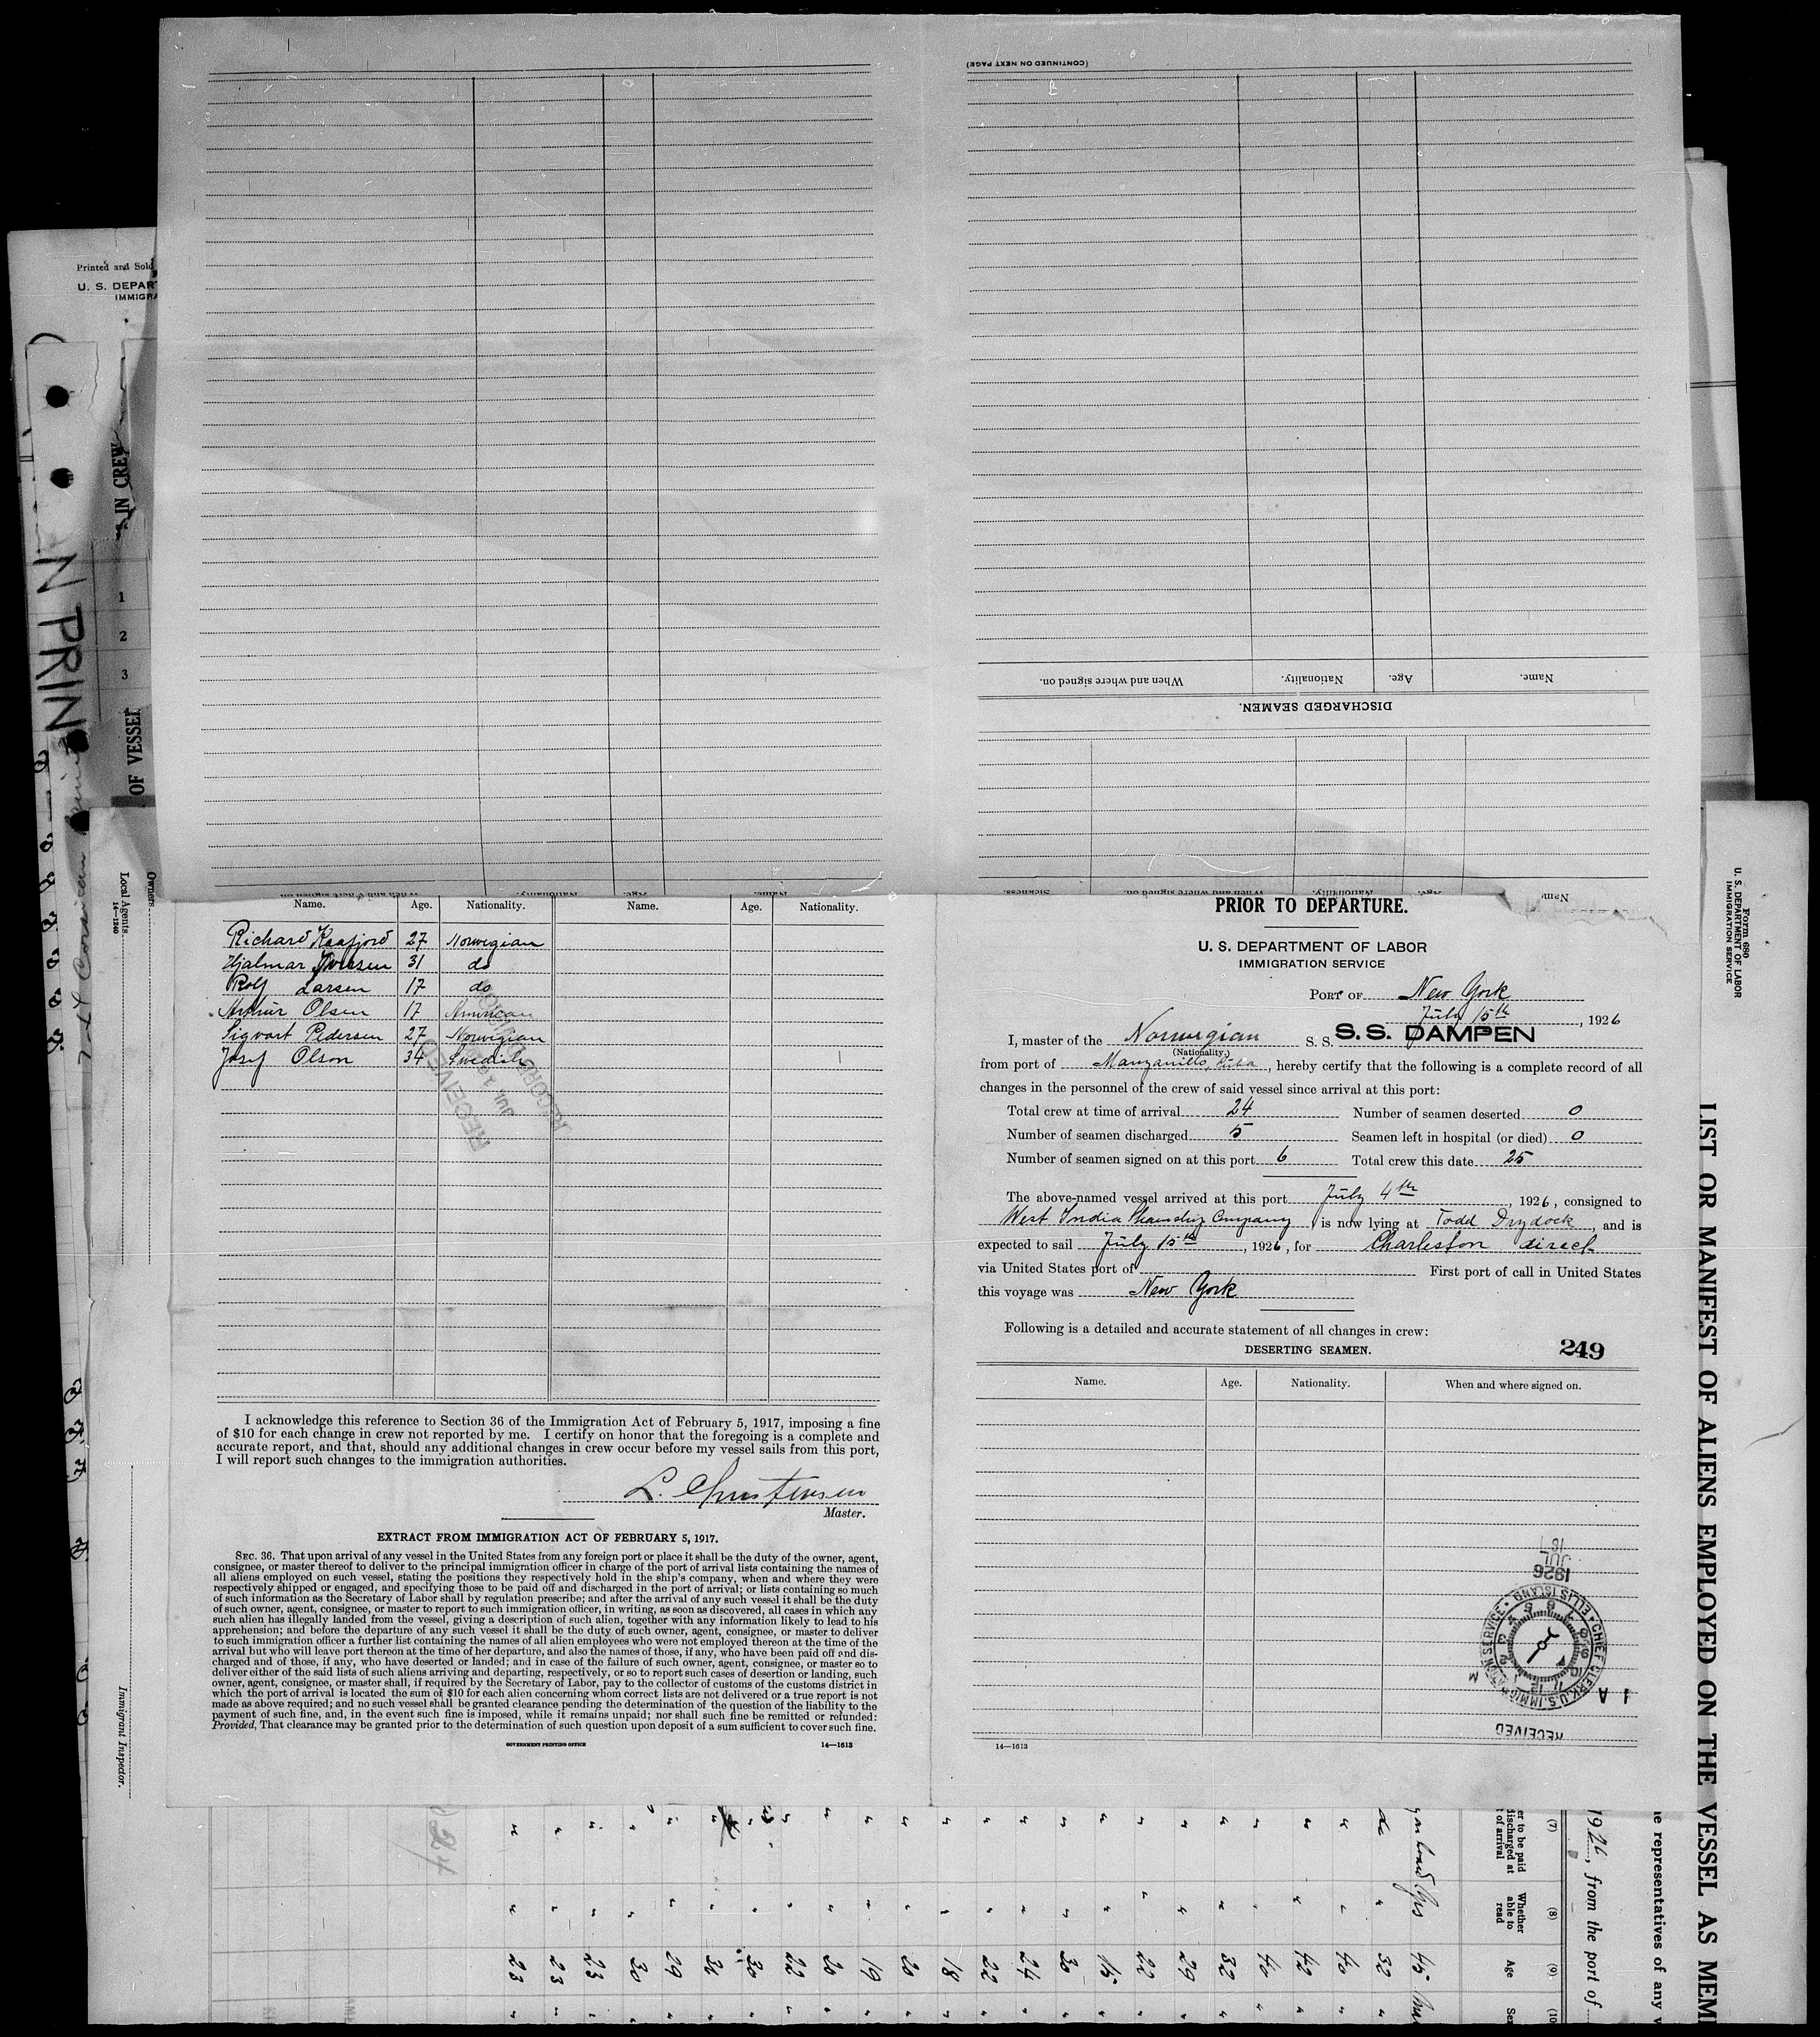 (CONTINUED ON NEXT PAGE)
When and where signed on.
Nationality.
Age.
Name.
DISCHARGED SEAMEN.
Sickness.
When and where signed on
Nationality.
Age.
Name
Printed and Sold
U. S. DEPAR
IMMIGRA
IN CREW
N PRIN
1
2
3
OF VESSEL
Owners
Local Agents
14—1240
Immigrant Inspector.
Name. Age. Nationality. Name. Age. Nationality.
Richard Kaafjord 27 Norwegian
Hjalmar 31 do
Rolf Larsen 17 do
Arthur Olsen 17 American
Sigvart Pedersen 27 Norwegian
Josef Olson 34 Swedish
RECEIVED
JUL 16
RECORD
I acknowledge this reference to Section 36 of the Immigration Act of February 5, 1917, imposing a fine
of $10 for each change in crew not reported by me. I certify on honor that the foregoing is a complete and
accurate report, and that, should any additional changes in crew occur before my vessel sails from this port,
I will report such changes to the immigration authorities.
L. Christensen
Master.
EXTRACT FROM IMMIGRATION ACT OF FEBRUARY 5, 1917.
SEC. 36. That upon arrival of any vessel in the United States from any foreign port or place it shall be the duty of the owner, agent,
consignee, or master thereof to deliver to the principal immigration officer in charge of the port of arrival lists containing the names of
all aliens employed on such vessel, stating the positions they respectively hold in the ship's company, when and where they were
respectively shipped or engaged, and specifying those to be paid off and discharged in the port of arrival; or lists containing so much
of such information as the Secretary of Labor shall by regulation prescribe; and after the arrival of any such vessel it shall be the duty
of such owner, agent, consignee, or master to report to such immigration officer, in writing, as soon as discovered, all cases in which any
such alien has illegally landed from the vessel, giving a description of such alien, together with any information likely to lead to his
apprehension; and before the departure of any such vessel it shall be the duty of such owner, agent, consignee, or master to deliver
to such immigration officer a further list containing the names of all alien employees who were not employed thereon at the time of the
arrival but who will leave port thereon at the time of her departure, and also the names of those, if any, who have been paid off and dis-
charged and of those, if any, who have deserted or landed; and in case of the failure of such owner, agent, consignee, or master so to
deliver either of the said lists of such aliens arriving and departing, respectively, or so to report such cases of desertion or landing, such
owner, agent, consignee, or master shall, if required by the Secretary of Labor, pay to the collector of customs of the customs district in
which the port of arrival is located the sum of $10 for each alien concerning whom correct lists are not delivered or a true report is not
made as above required; and no such vessel shall be granted clearance pending the determination of the question of the liability to the
payment of such fine, and, in the event such fine is imposed, while it remains unpaid; nor shall such fine be remitted or refunded:
Provided, That clearance may be granted prior to the determination of such question upon deposit of a sum sufficient to cover such fine.
GOVERNMENT PRINTING OFFICE 14—1613
PRIOR TO DEPARTURE.
U. S. DEPARTMENT OF LABOR
IMMIGRATION SERVICE
PORT OF New York
July 15th, 1926
I, master of the Norwegian S. S. S.S. DAMPEN
(Nationality.)
from port of Manzanillo, Cuba, hereby certify that the following is a complete record of all
changes in the personnel of the crew of said vessel since arrival at this port:
Total crew at time of arrival 24 Number of seamen deserted 0
Number of seamen discharged 5 Seamen left in hospital (or died) 0
Number of seamen signed on at this port 6 Total crew this date 25
The above-named vessel arrived at this port July 4th, 1926, consigned to
West India Steamship Company, is now lying at Todd Drydock, and is
expected to sail July 15th, 1926, for Charleston direct
via United States port of First port of call in United States
this voyage was New York
Following is a detailed and accurate statement of all changes in crew:
DESERTING SEAMEN. 249
Name. Age. Nationality. When and where signed on.
RECEIVED
CHIEF CLERK, U.S. IMMIGRATION SERVICE • ELLIS ISLAND
1926
JUL
16
A M
14—1613
Form 680
U. S. DEPARTMENT OF LABOR
IMMIGRATION SERVICE
LIST OR MANIFEST OF ALIENS EMPLOYED ON THE VESSEL AS MEM
e representatives of any v
1926, from the port of
(7) (8) (9) (10)
er to be paid
discharged at
t of arrival
Whether
able to
read
Age
Sex
Yes 45
do 32
40
42
40
32
29
22
15
30
24
22
18
20
19
20
22
30
36
29
30
23
23
23
24